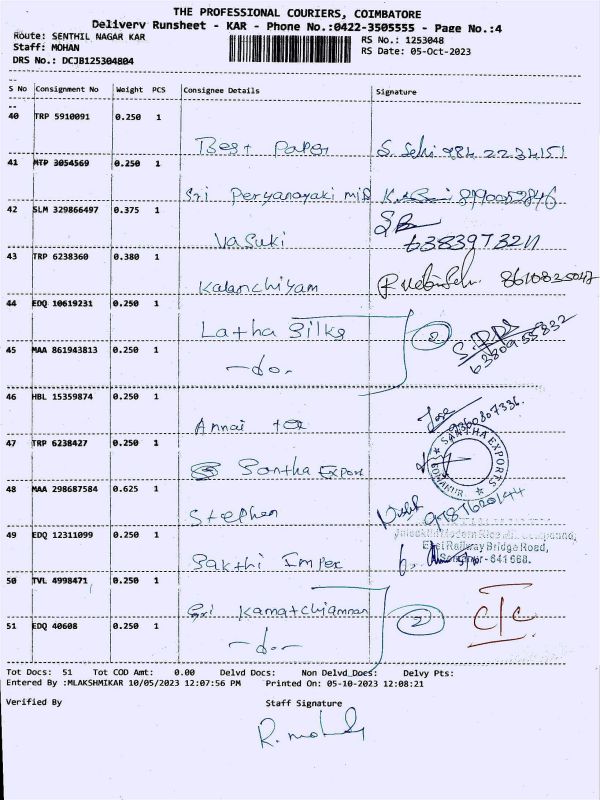 THE PROFESSIONAL COURIERS, COIMBATORE
Delivery Runsheet - KAR - Phone No.:0422-3505555 - Page No.:4
Route: SENTHIL NAGAR KAR
RS No.: 1253048
Staff: MOHAN
RS Date: 05-Oct-2023
DRS No.: DCJB125304804
S No Consignment No Weight PCS Consignee Details Signature
40 TRP 5910091 0.250 1
Best Paper
41 MTP 3054569 0.250 1
Sri Peryanayaki mill
42 SLM 329866497 0.375 1
Vasuki 6383973211
43 TRP 6238360 0.380 1
Kalanchiyam 8610825047
44 EDQ 10619231 0.250 1
Latha Silks 2
45 MAA 861943813 0.250 1
-do-
46 HBL 15359874 0.250 1
Annai tex 9360807336
47 TRP 6238427 0.250 1
Santha Export
SANTHA EXPORTS
48 MAA 298687584 0.625 1
Stephen
49 EDQ 12311099 0.250 1
East Railway Bridge Road,
Sakthi Impex
50 TVL 4998471 0.250 1
Sri Kamatchiamman 2 C/C
51 EDQ 40608 0.250 1
-do-
Tot Docs: 51 Tot COD Amt: 0.00 Delvd Docs: Non Delvd Docs: Delvy Pts:
Entered By :MLAKSHMIKAR 10/05/2023 12:07:56 PM Printed On: 05-10-2023 12:08:21
Verified By Staff Signature
R. mohan